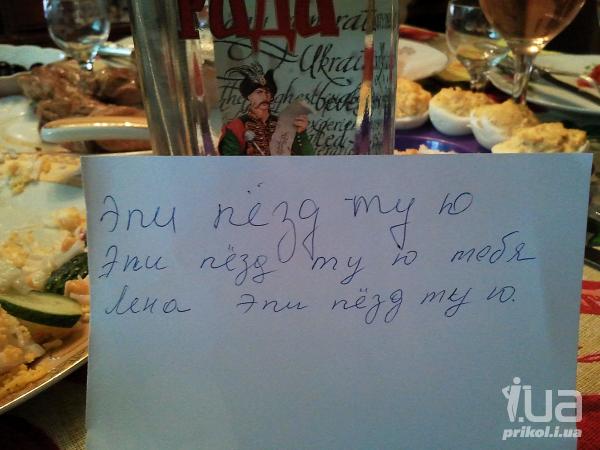 рада
Ukrai
Эпи пёзд ту ю
Эпи пёзд ту ю тебя
Лена эпи пёзд ту ю.
i.ua
prikol.i.ua